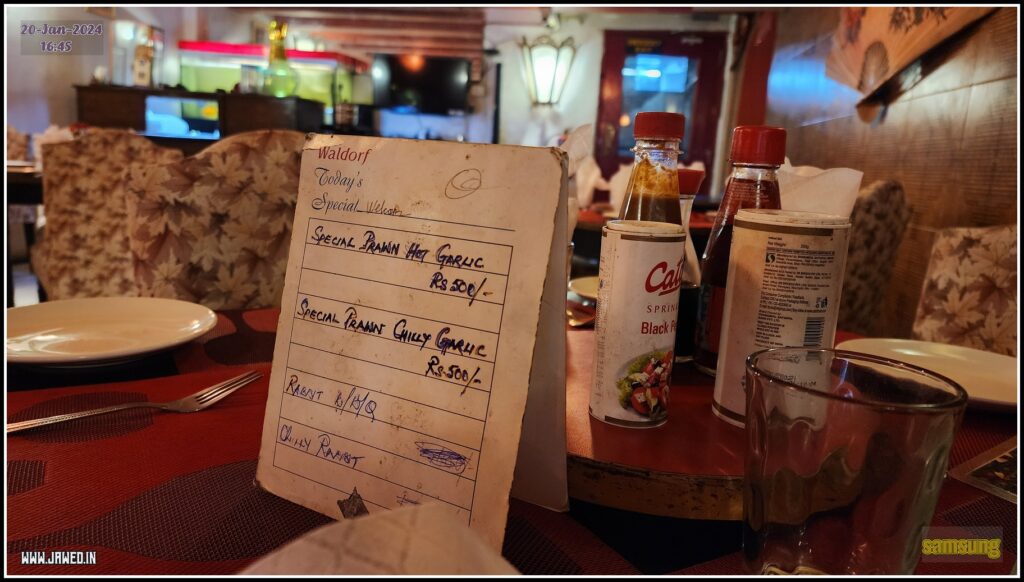 20-Jan-2024
16:45
Waldorf
Today's
Special Welcom
SPECIAL PRAWN HOT GARLIC
RS 500/-
SPECIAL PRAWN CHILLY GARLIC
RS-500/-
RABBIT B/B/Q
CHILLY RABBIT
Cat
SPRIN
Black Pe
WWW.JAWED.IN
samsung